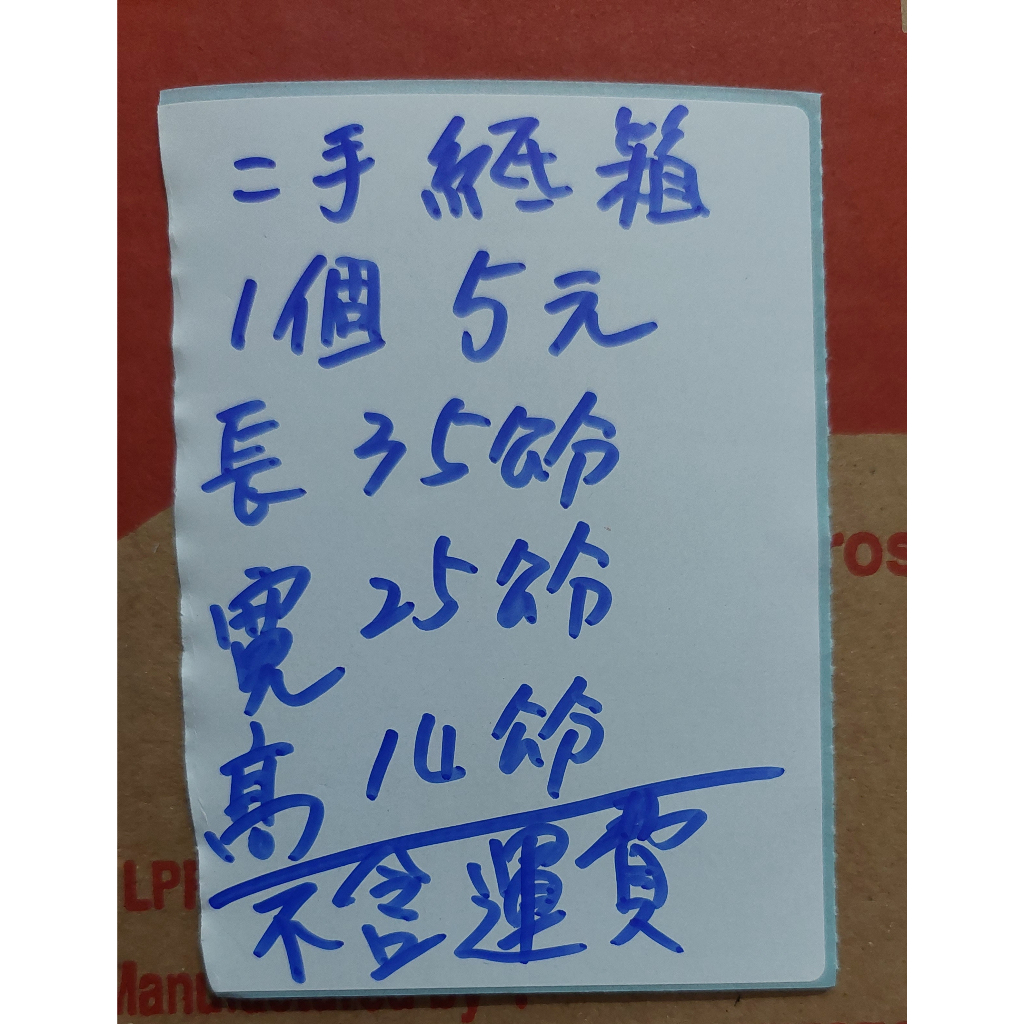 二手紙箱
1個 5元
長 35公分
寬 25公分
高 14公分
不含運費
ros
LPP
Manufactured by